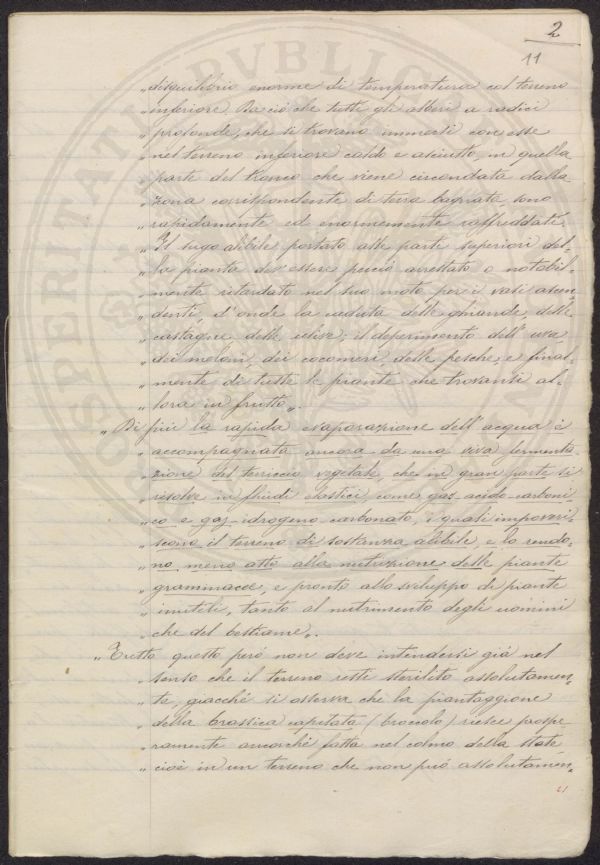 2
11
„ disquilibrio enorme di temperatura col terreno
„ inferiore. Da ciò che tutti gli alberi a radici
„ profonde, che si trovano immersi con esse
„ nel terreno inferiore caldo e asciutto, in quella
„ parte del tronco che viene circondata dalla
„ zona corrispondente di terra bagnata sono
„ rapidamente ed enormemente raffreddati.
„ Il sugo alibile portato alle parti superiori del-
„ la pianta dev'essere perciò arrestato o notabil-
„ mente ritardato nel suo moto per i vasi ascen-
„ denti, d'onde la caduta delle ghiande, delle
„ castagne delle ulive; il deperimento dell'uva
„ dei meloni, dei cocomeri delle pesche, e final-
„ mente di tutte le piante che trovansi al-
„ lora in frutto„.
„ Di più la rapida evaporazione dell'acqua è
„ accompagnata ancora da una viva fermenta-
„ zione del terriccio vegetale che in gran parte si
„ risolve in fluidi elastici come gaz-acido-carboni
„ co e gaz-idrogeno carbonato, i quali impoveri-
„ scono il terreno di sostanza alibile, e lo rendo-
„ no meno atto alla nutrizione delle piante
„ grammacee, e pronto allo sviluppo di piante
„ inutili, tanto al nutrimento degli uomini
„ che del bestiame„.
„ Tutto questo però non deve intendersi già nel
„ senso che il terreno resti sterilito assolutamen-
„ te, giacchè si osserva che la piantaggione
„ della brassica capitata (broccolo) riesce prospe
„ ramente ancorchè fatta nel colmo della state
„ cioè in un terreno che non può assolutamen-
PROSPERITATI PVBLIC